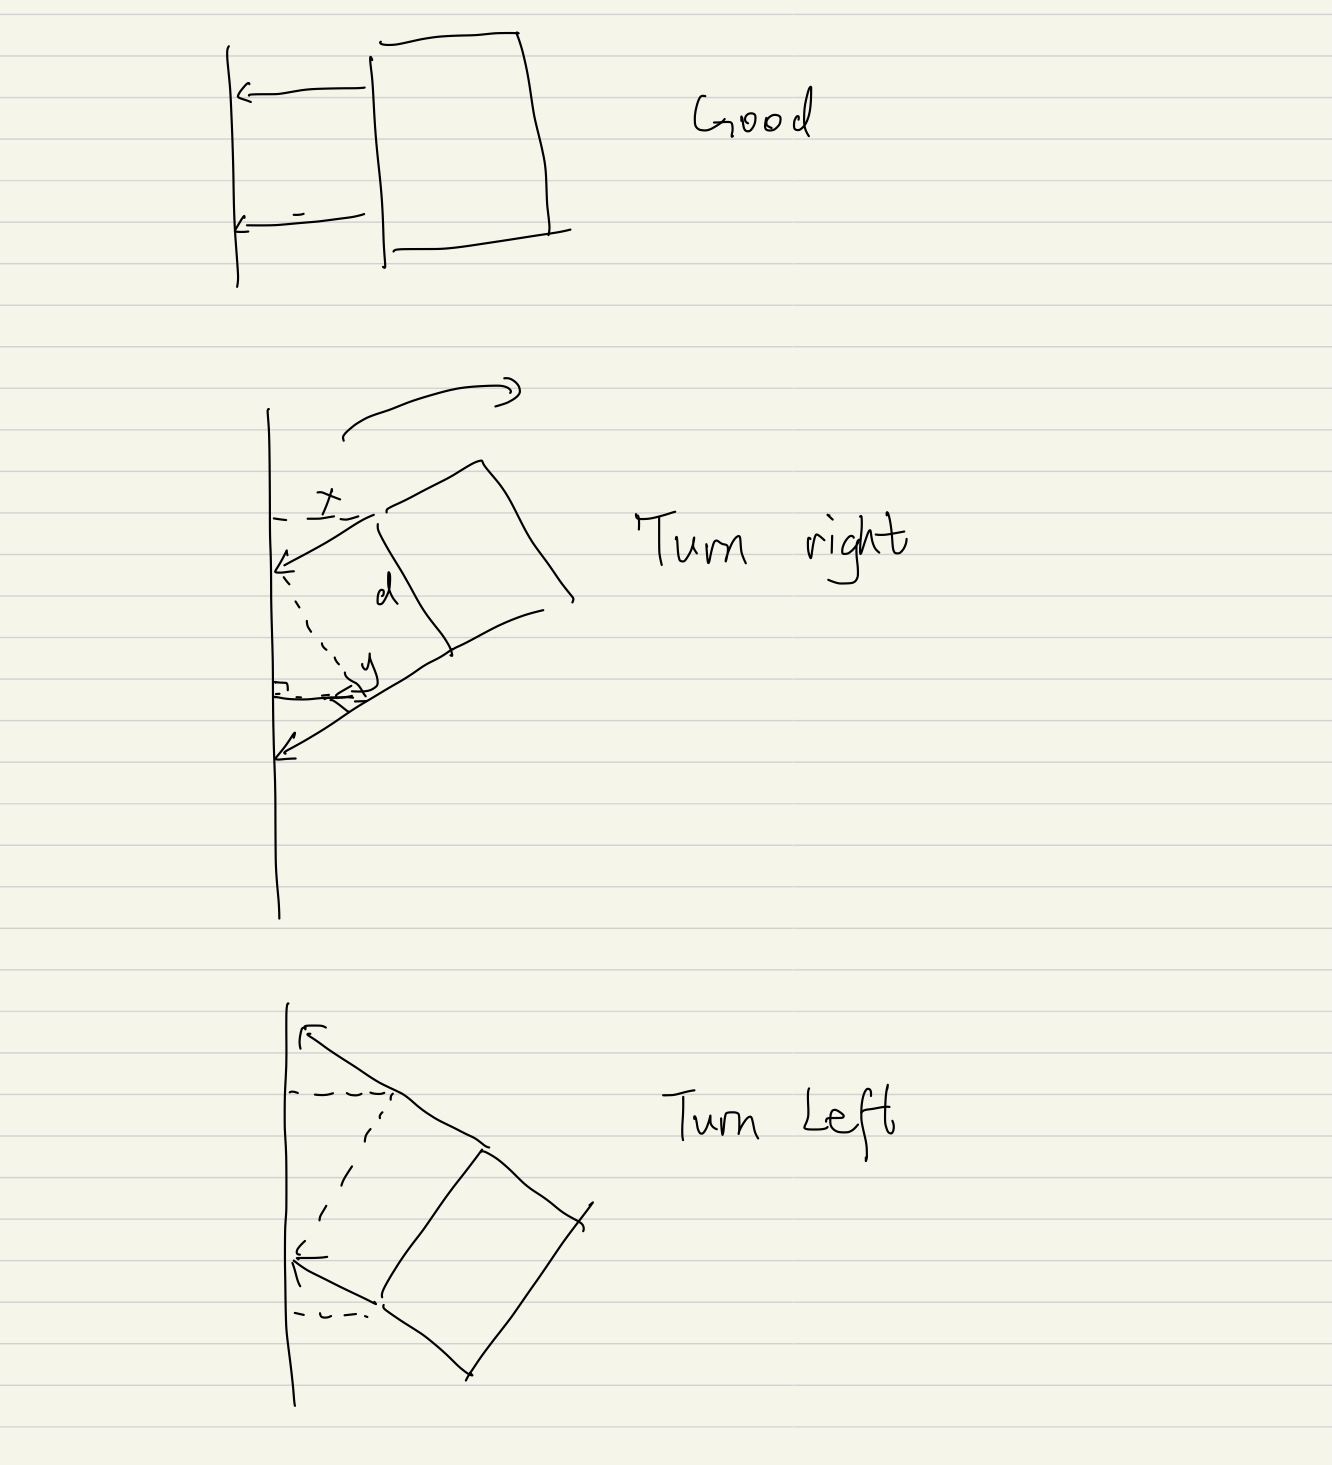 Good
x
Turn right
d
y
Turn Left